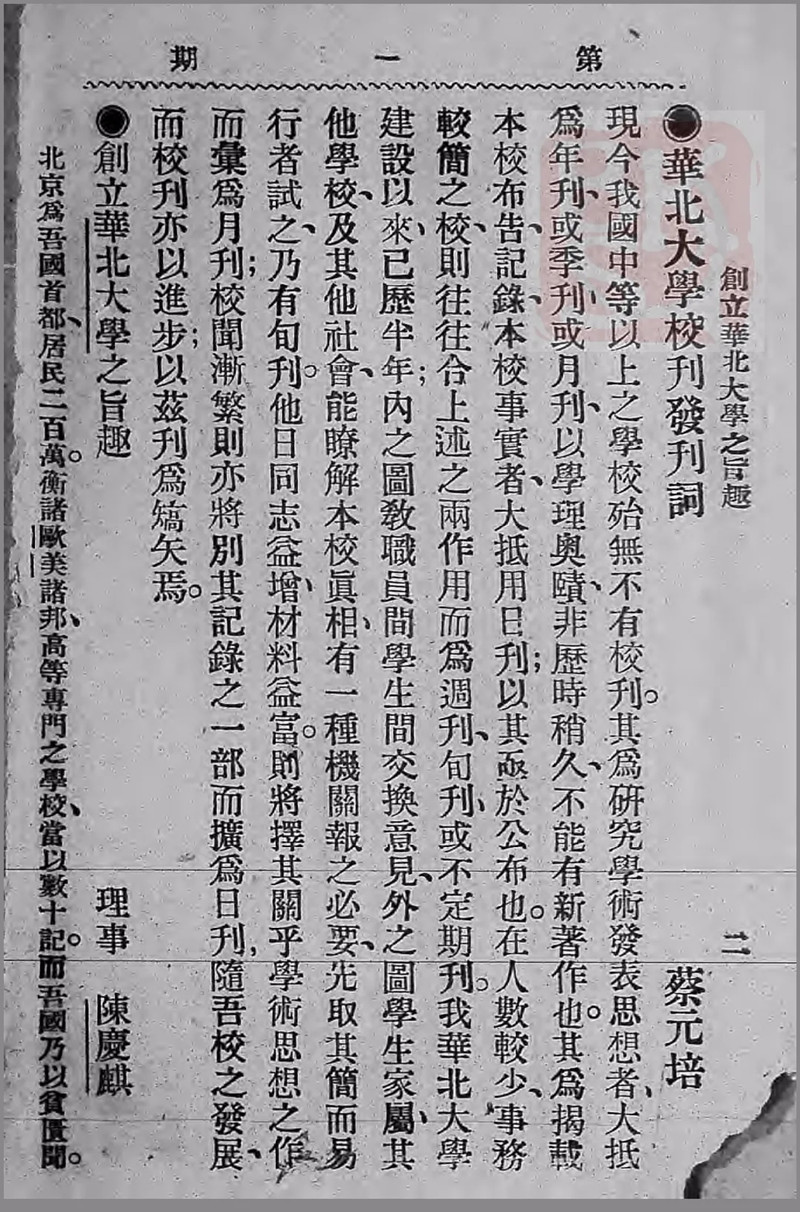 第一期
創立華北大學之旨趣　二
●華北大學校刊發刊詞　蔡元培
現今我國中等以上之學校殆無不有校刊。其爲硏究學術發表思想者、大抵
爲年刊、或季刊或月刊、以學理奧賾、非歷時稍久、不能有新著作也。其爲揭載
本校布告、記錄、本校事實者、大抵用日刊；以其亟於公布也。在人數較少、事務
較簡之校、則往往合上述之兩作用而爲週刊、旬刊、或不定期刊。我華北大學
建設以來、已歷半年；內之圖敎職員間學生間交換意見、外之圖學生家屬、其
他學校、及其他社會、能瞭解本校眞相、有一種機關報之必要、先取其簡而易
行者試之、乃有旬刊。他日同志益增、材料益富。則將擇其關乎學術思想之作
而彙爲月刊；校聞漸繁則亦將別其記錄之一部而擴爲日刊，隨吾校之發展、
而校刊亦以進步；以茲刊爲嚆矢焉。
●創立華北大學之旨趣　理事　陳慶麒
北京爲吾國首都、居民二百萬。衡諸歐美諸邦、高等專門之學校、當以數十記。而吾國乃以貧匱聞。